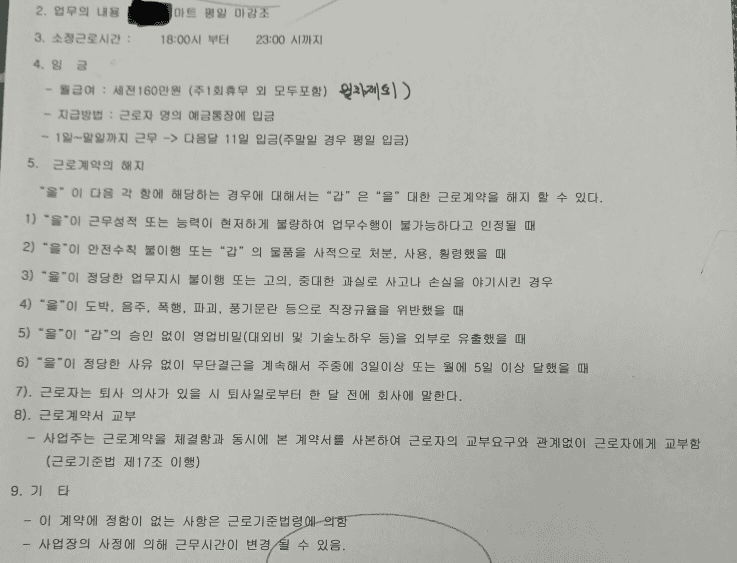 2. 업무의 내용 마트 평일 마감조
3. 소정근로시간 : 18:00시 부터 23:00 시까지
4. 임 금
- 월급여 : 세전160만원 (주1회휴무 외 모두포함)
- 지급방법 : 근로자 명의 예금통장에 입금
- 1일~말일까지 근무 -> 다음달 11일 입금(주말일 경우 평일 입금)
5. 근로계약의 해지
"을" 이 다음 각 항에 해당하는 경우에 대해서는 "갑" 은 "을" 대한 근로계약을 해지 할 수 있다.
1) "을"이 근무성적 또는 능력이 현저하게 불량하여 업무수행이 불가능하다고 인정될 때
2) "을"이 안전수칙 불이행 또는 "갑" 의 물품을 사적으로 처분, 사용, 횡령했을 때
3) "을"이 정당한 업무지시 불이행 또는 고의, 중대한 과실로 사고나 손실을 야기시킨 경우
4) "을"이 도박, 음주, 폭행, 파괴, 풍기문란 등으로 직장규율을 위반했을 때
5) "을"이 "갑"의 승인 없이 영업비밀(대외비 및 기술노하우 등)을 외부로 유출했을 때
6) "을"이 정당한 사유 없이 무단결근을 계속해서 주중에 3일이상 또는 월에 5일 이상 달했을 때
7). 근로자는 퇴사 의사가 있을 시 퇴사일로부터 한 달 전에 회사에 말한다.
8). 근로계약서 교부
- 사업주는 근로계약을 체결함과 동시에 본 계약서를 사본하여 근로자의 교부요구와 관계없이 근로자에게 교부함
(근로기준법 제17조 이행)
9. 기 타
- 이 계약에 정함이 없는 사항은 근로기준법령에 의함
- 사업장의 사정에 의해 근무시간이 변경 될 수 있음.